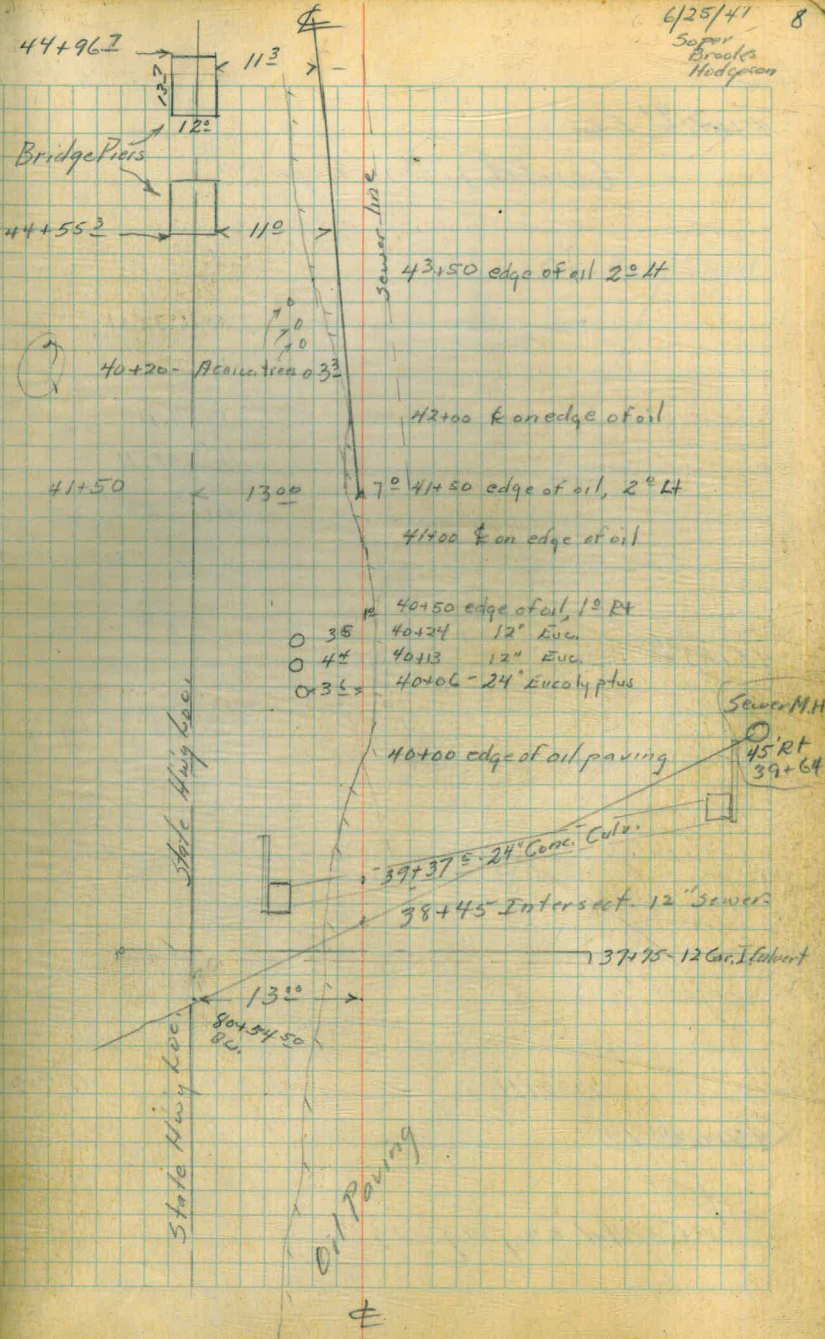 6/25/41 8
Soper
Brooks
Hodgson
℄
44+96 7
11 3
13 7
12 0
Bridge Piers
44+55 3
11 0
Sewer line
43+50 edge of oil 2 0 Lt
40+20 - Acacia trees 0 3 3
42+00 ℄ on edge of oil
41+50
13 00
7 0 41+50 edge of oil, 2 0 Lt
41+00 ℄ on edge of oil
1 0 40+50 edge of oil, 1 0 Rt
3 5 40+24 12" Euc.
4 4 40+13 12" Euc.
3 6 40+06 - 24" Eucalyptus
Sewer M.H.
45' Rt
39+64
40+00 edge of oil paving
State Hwy Loc.
39+37 5 - 24" Conc. Culv.
38+45 Intersect. 12" Sewer
37+95 - 12 Cor. I. Culvert
13 00
80+54 50
State Hwy Loc.
Oil Paving
℄